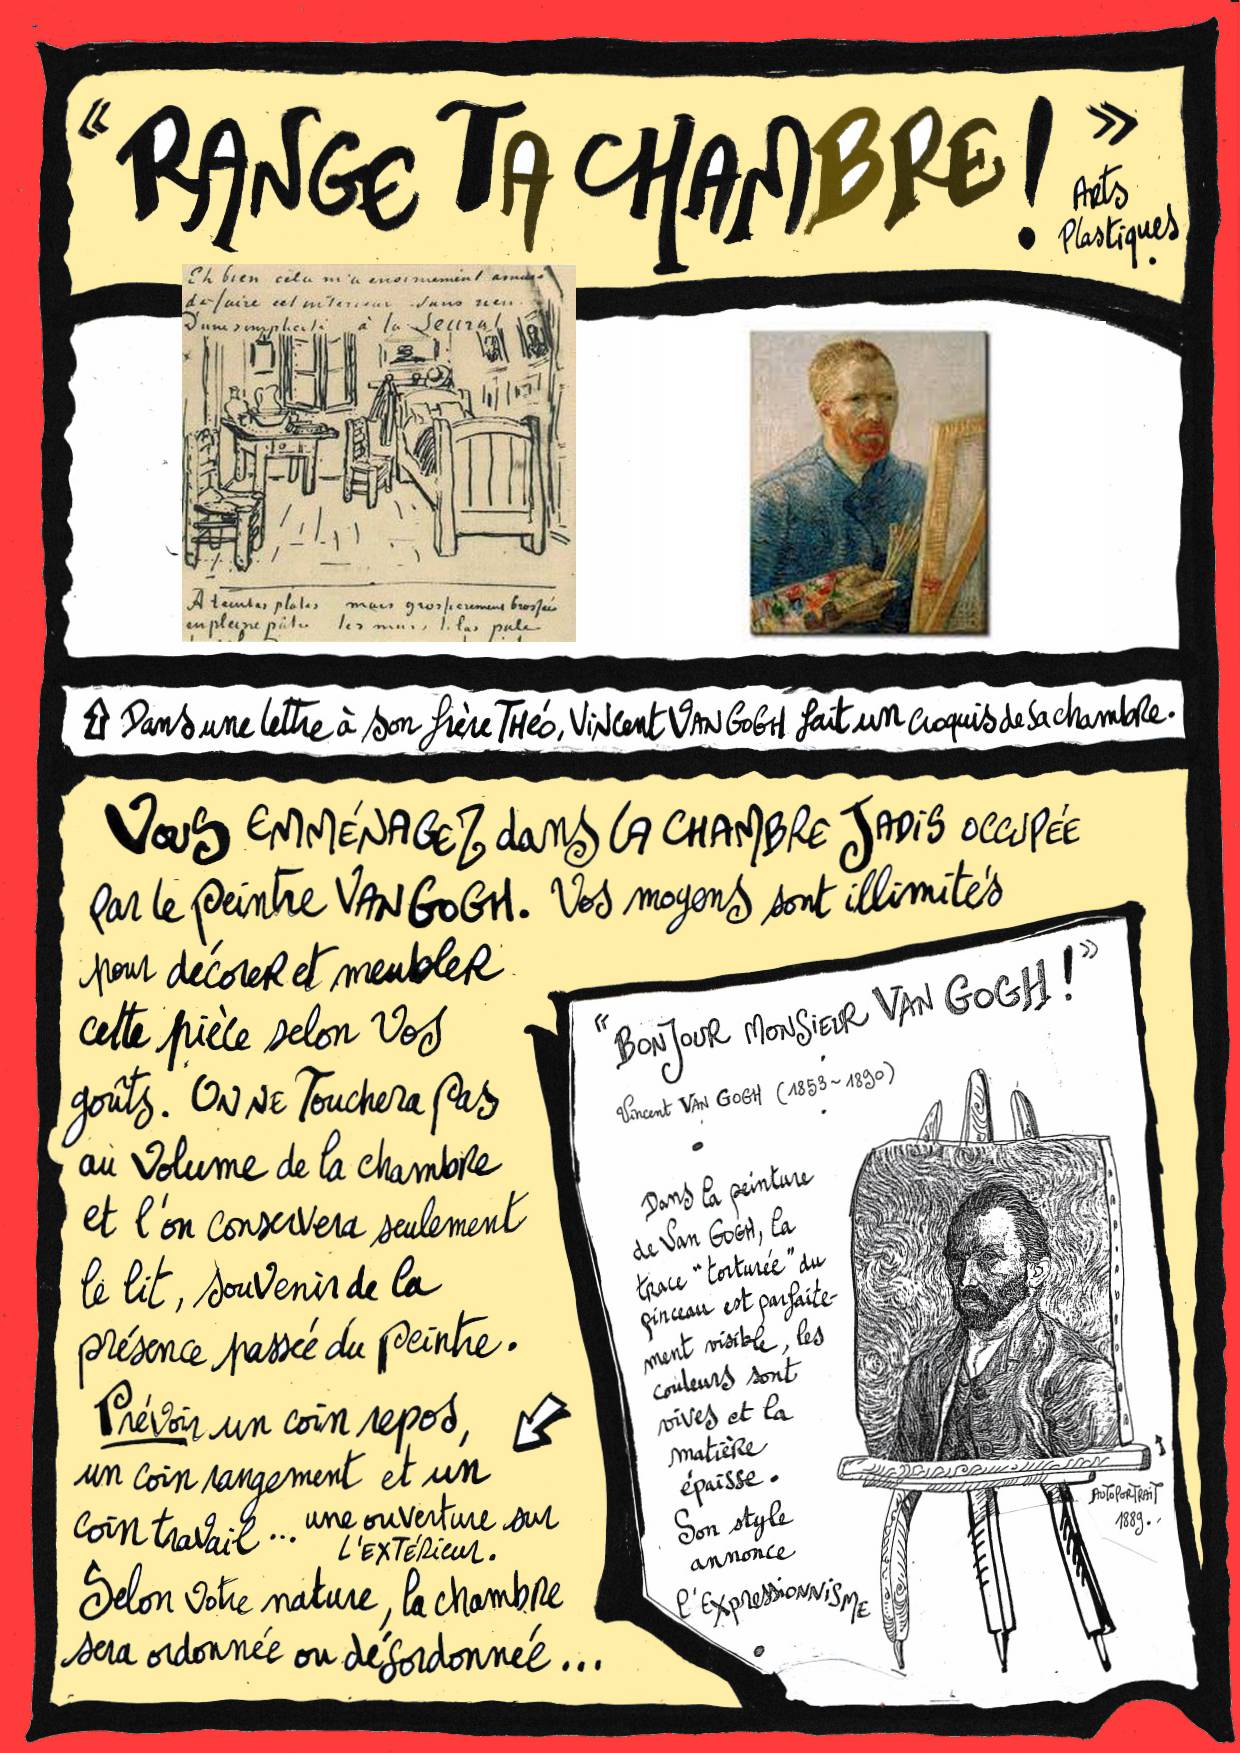 « RANGE TA CHAMBRE ! »
Arts
Plastiques.
Eh bien cela m'a enormement amusé
de faire cet interieur sans rien.
D'une simplicité à la Seurat
A teintes plates mais grossierement brossées
en pleine pâte les murs lilas pale
Dans une lettre à son frère THÉO, VINCENT VAN GOGH fait un croquis de sa chambre.
Vous EMMÉNAGEZ dans LA CHAMBRE JADIS OCCUPÉE
par le peintre VAN GOGH. Vos moyens sont illimités
pour décorer et meubler
cette pièce selon vos
goûts. ON NE Touchera pas
au Volume de la chambre
et l'on conservera seulement
le lit, souvenir de la
présence passée du peintre.
Prévoir un coin repos,
un coin rangement et un
coin travail... une ouverture sur
L'EXTÉRIEUR.
Selon votre nature, la chambre
sera ordonnée ou désordonnée...
" BONJOUR MONSIEUR VAN GOGH ! "
Vincent VAN GOGH (1853~1890)
Dans la peinture
de Van GOGH, la
trace "torturée" du
pinceau est parfaite-
ment visible, les
couleurs sont
vives et la
matière
épaisse.
Son style
annonce
l'EXPRESSIONNISME
AUTOPORTRAIT
1889..